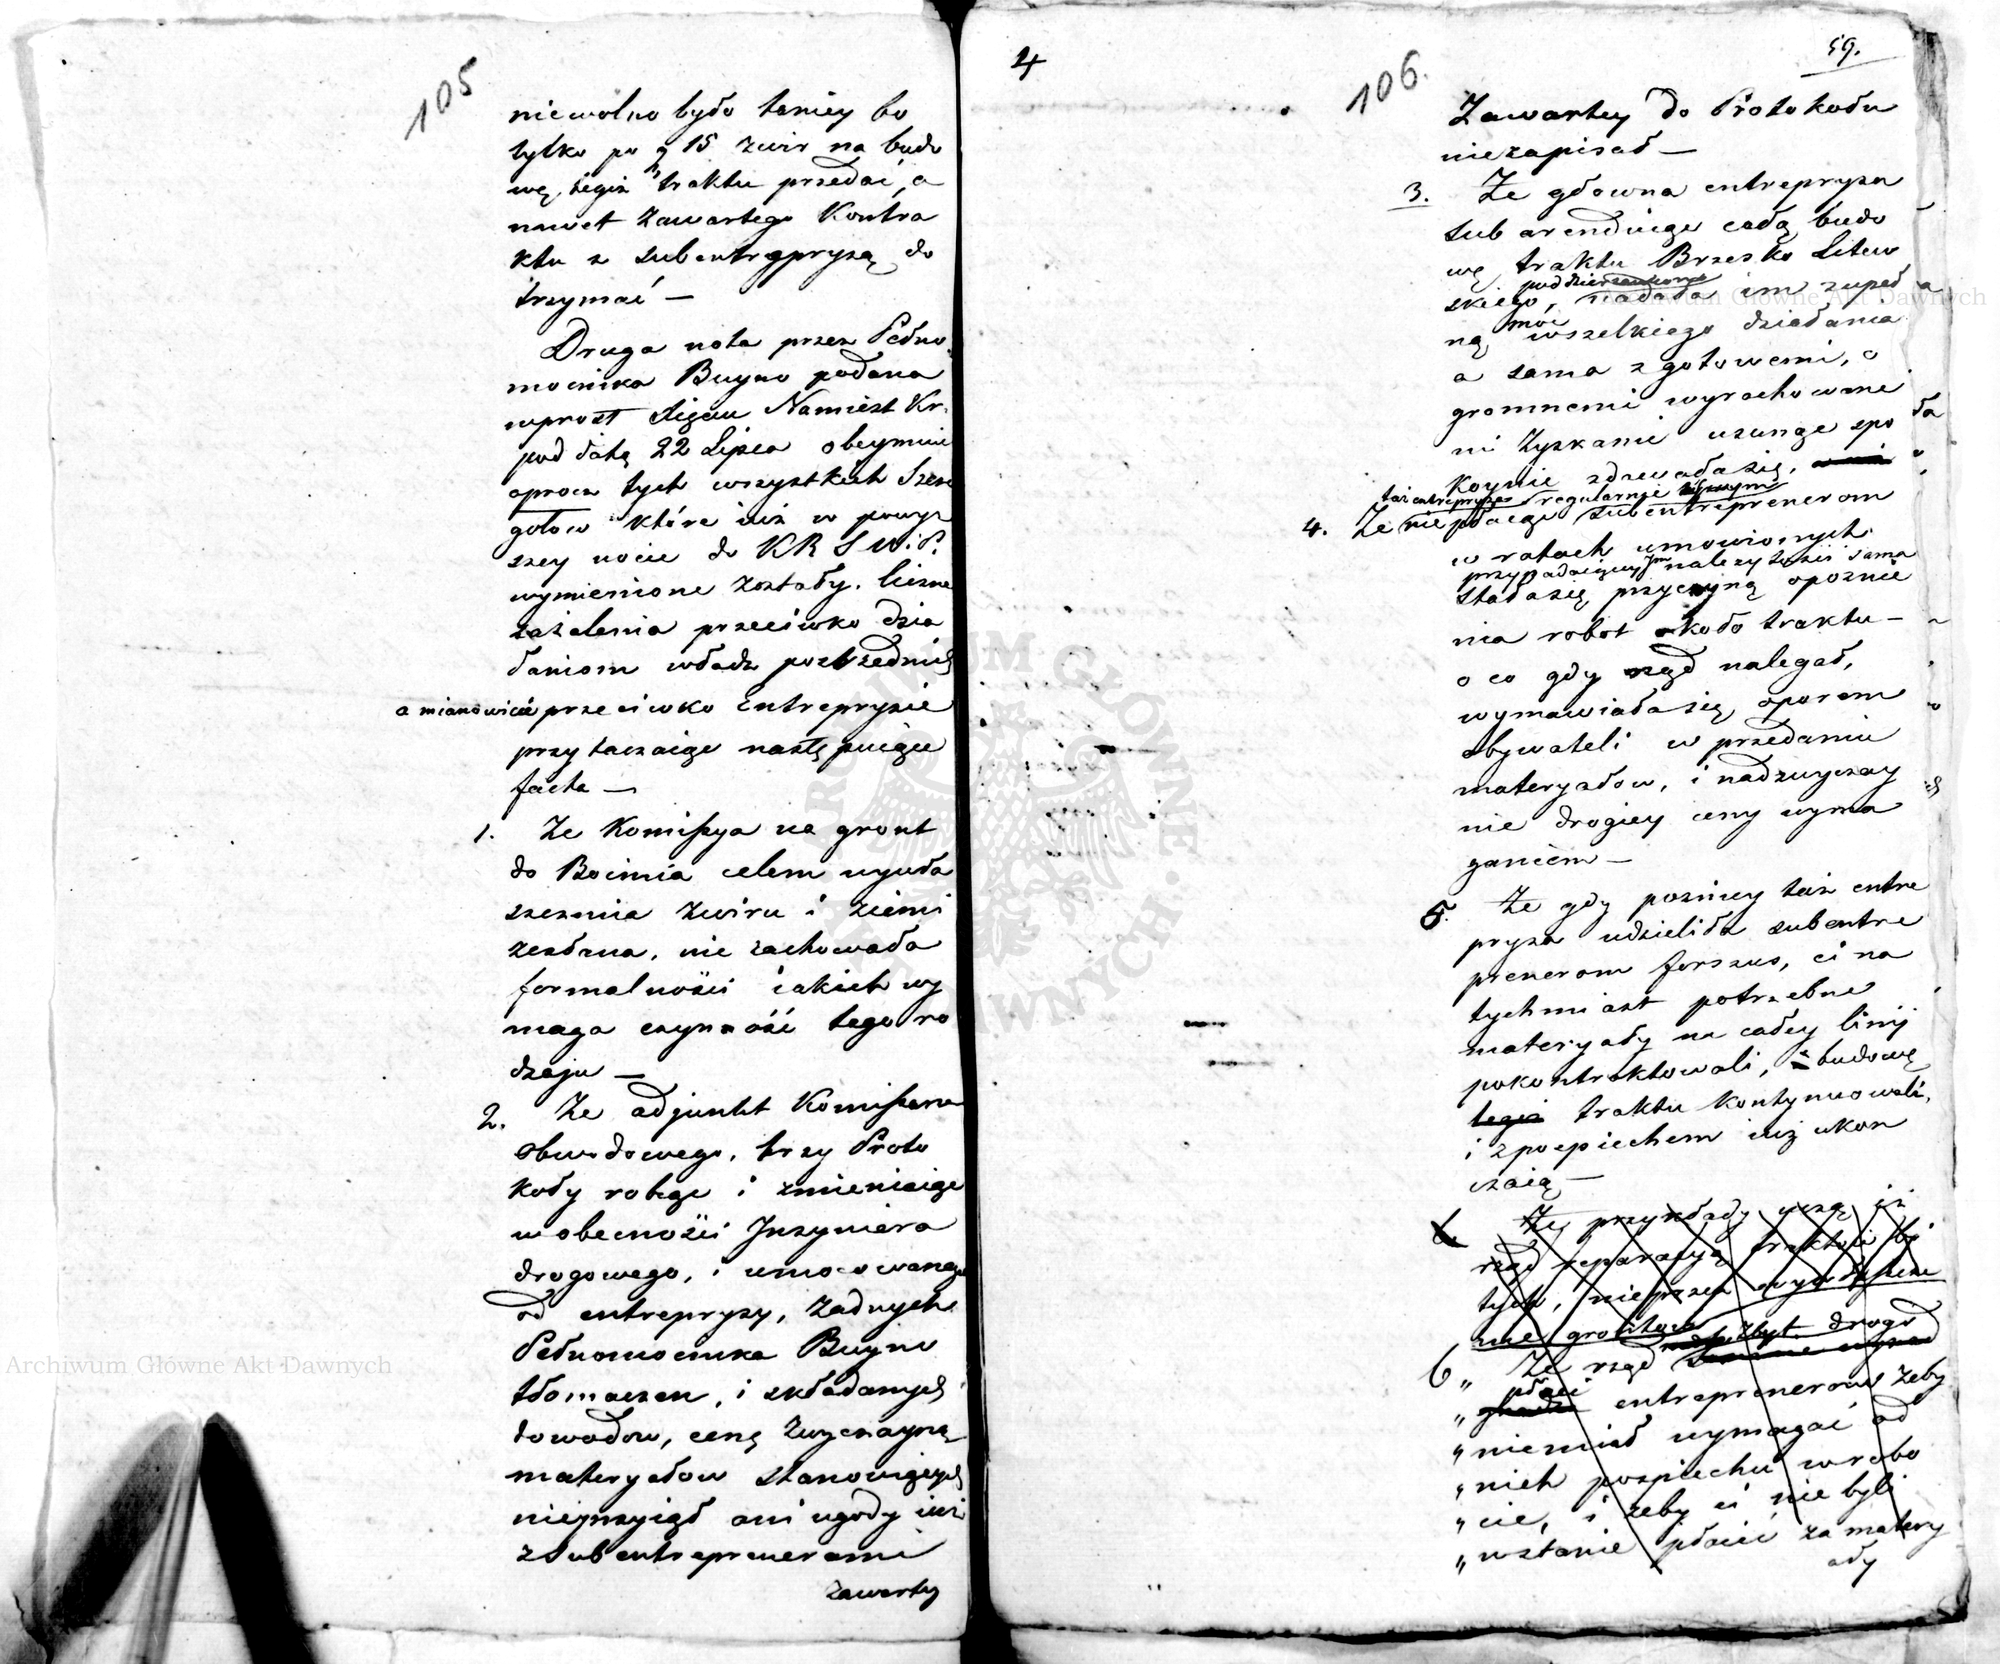 105
niewolno było taniey bo
tylko po g 15 zwir na budo
wę tegiż traktu przedać, a
nawet zawartego Kontra
ktu z subentrepryzą do
trzymać —
Druga nota przez Pełno
mocnika Buyno podana
wprost Xięciu Namiest Kr.
pod datą 22 Lipca obeymuie
oprocz tych wszystkich Szcze
gołow które iuż w powyż
szey nocie do KRSWiP.
wymienione zostały, liczne
zażalenia przeciwko dzia
łaniom władz pośrednich
a mianowicie przeciwko Entrepryzie
przytaczaiąc następuiące
facta —
1. Że Kommissya na grunt
do Boimia celem wywła
szczenia żwiru i ziemi
zesłana, nie zachowała
formalności iakich wy
maga czynność tego ro
dzaju —
2. Że adjunkt Kommissarza
obwodowego, trzy Proto
koły robiąc i zmieniaiąc
w obecności Inżyniera
drogowego, i umocowanego
od entrepryzy, żadnych
Pełnomocnika Buyno
tłomaczeń, i składanych
dowodow, cenę zwyczayną
materyałow stanowiących
nieprzyiął ani ugody iuż
z Subentreprenerami
zawarty
4
106.
59.
Zawartey do Protokołu
niezapisał —
3. Że głowna entrepryza
subarenduiąc całą budo
wę traktu Brzesko Litew
skiego, nadała im zupeł
ną moc wszelkiego działania
a sama z gotowemi, o
gromnemi wyrachowane
mi zyskami usunąć spo
koynie zdawała się,
4. Że taż entrepryza nie płacąc regularnie subentreprenerom
w ratach umowionych
przypadaiącey Im należytości sama
stała się przyczyną opoźnie
nia robot około traktu —
o co gdy rząd nalegał,
wymawiała się oporem
obywateli w przedaniu
materyałow, i nadzwyczay
nie drogiey ceny wyma
ganiem —
5. Że gdy poźniey taż entre
pryza udzieliła subentre
prenerom forszus, ci na
tychmiast potrzebne
materyały na całey linij
pokontraktowali, i budowę
tegiż traktu kontynuowali,
i z pospiechem iuż ukoń
czaią —
Że przykłady uczą iż
rząd reparacyą traktow bi
tych, nieprzez
6 „ Że rząd zbyt drogo
„ płaci entreprenerow żeby
„ niemiał wymagać od
„ nich pospiechu w robo
„ cie, i żeby ci nie byli
„ wstanie płacić za matery
ały
Archiwum Główne Akt Dawnych
Archiwum Główne Akt Dawnych
ARCHIWUM GŁÓWNE AKT DAWNYCH